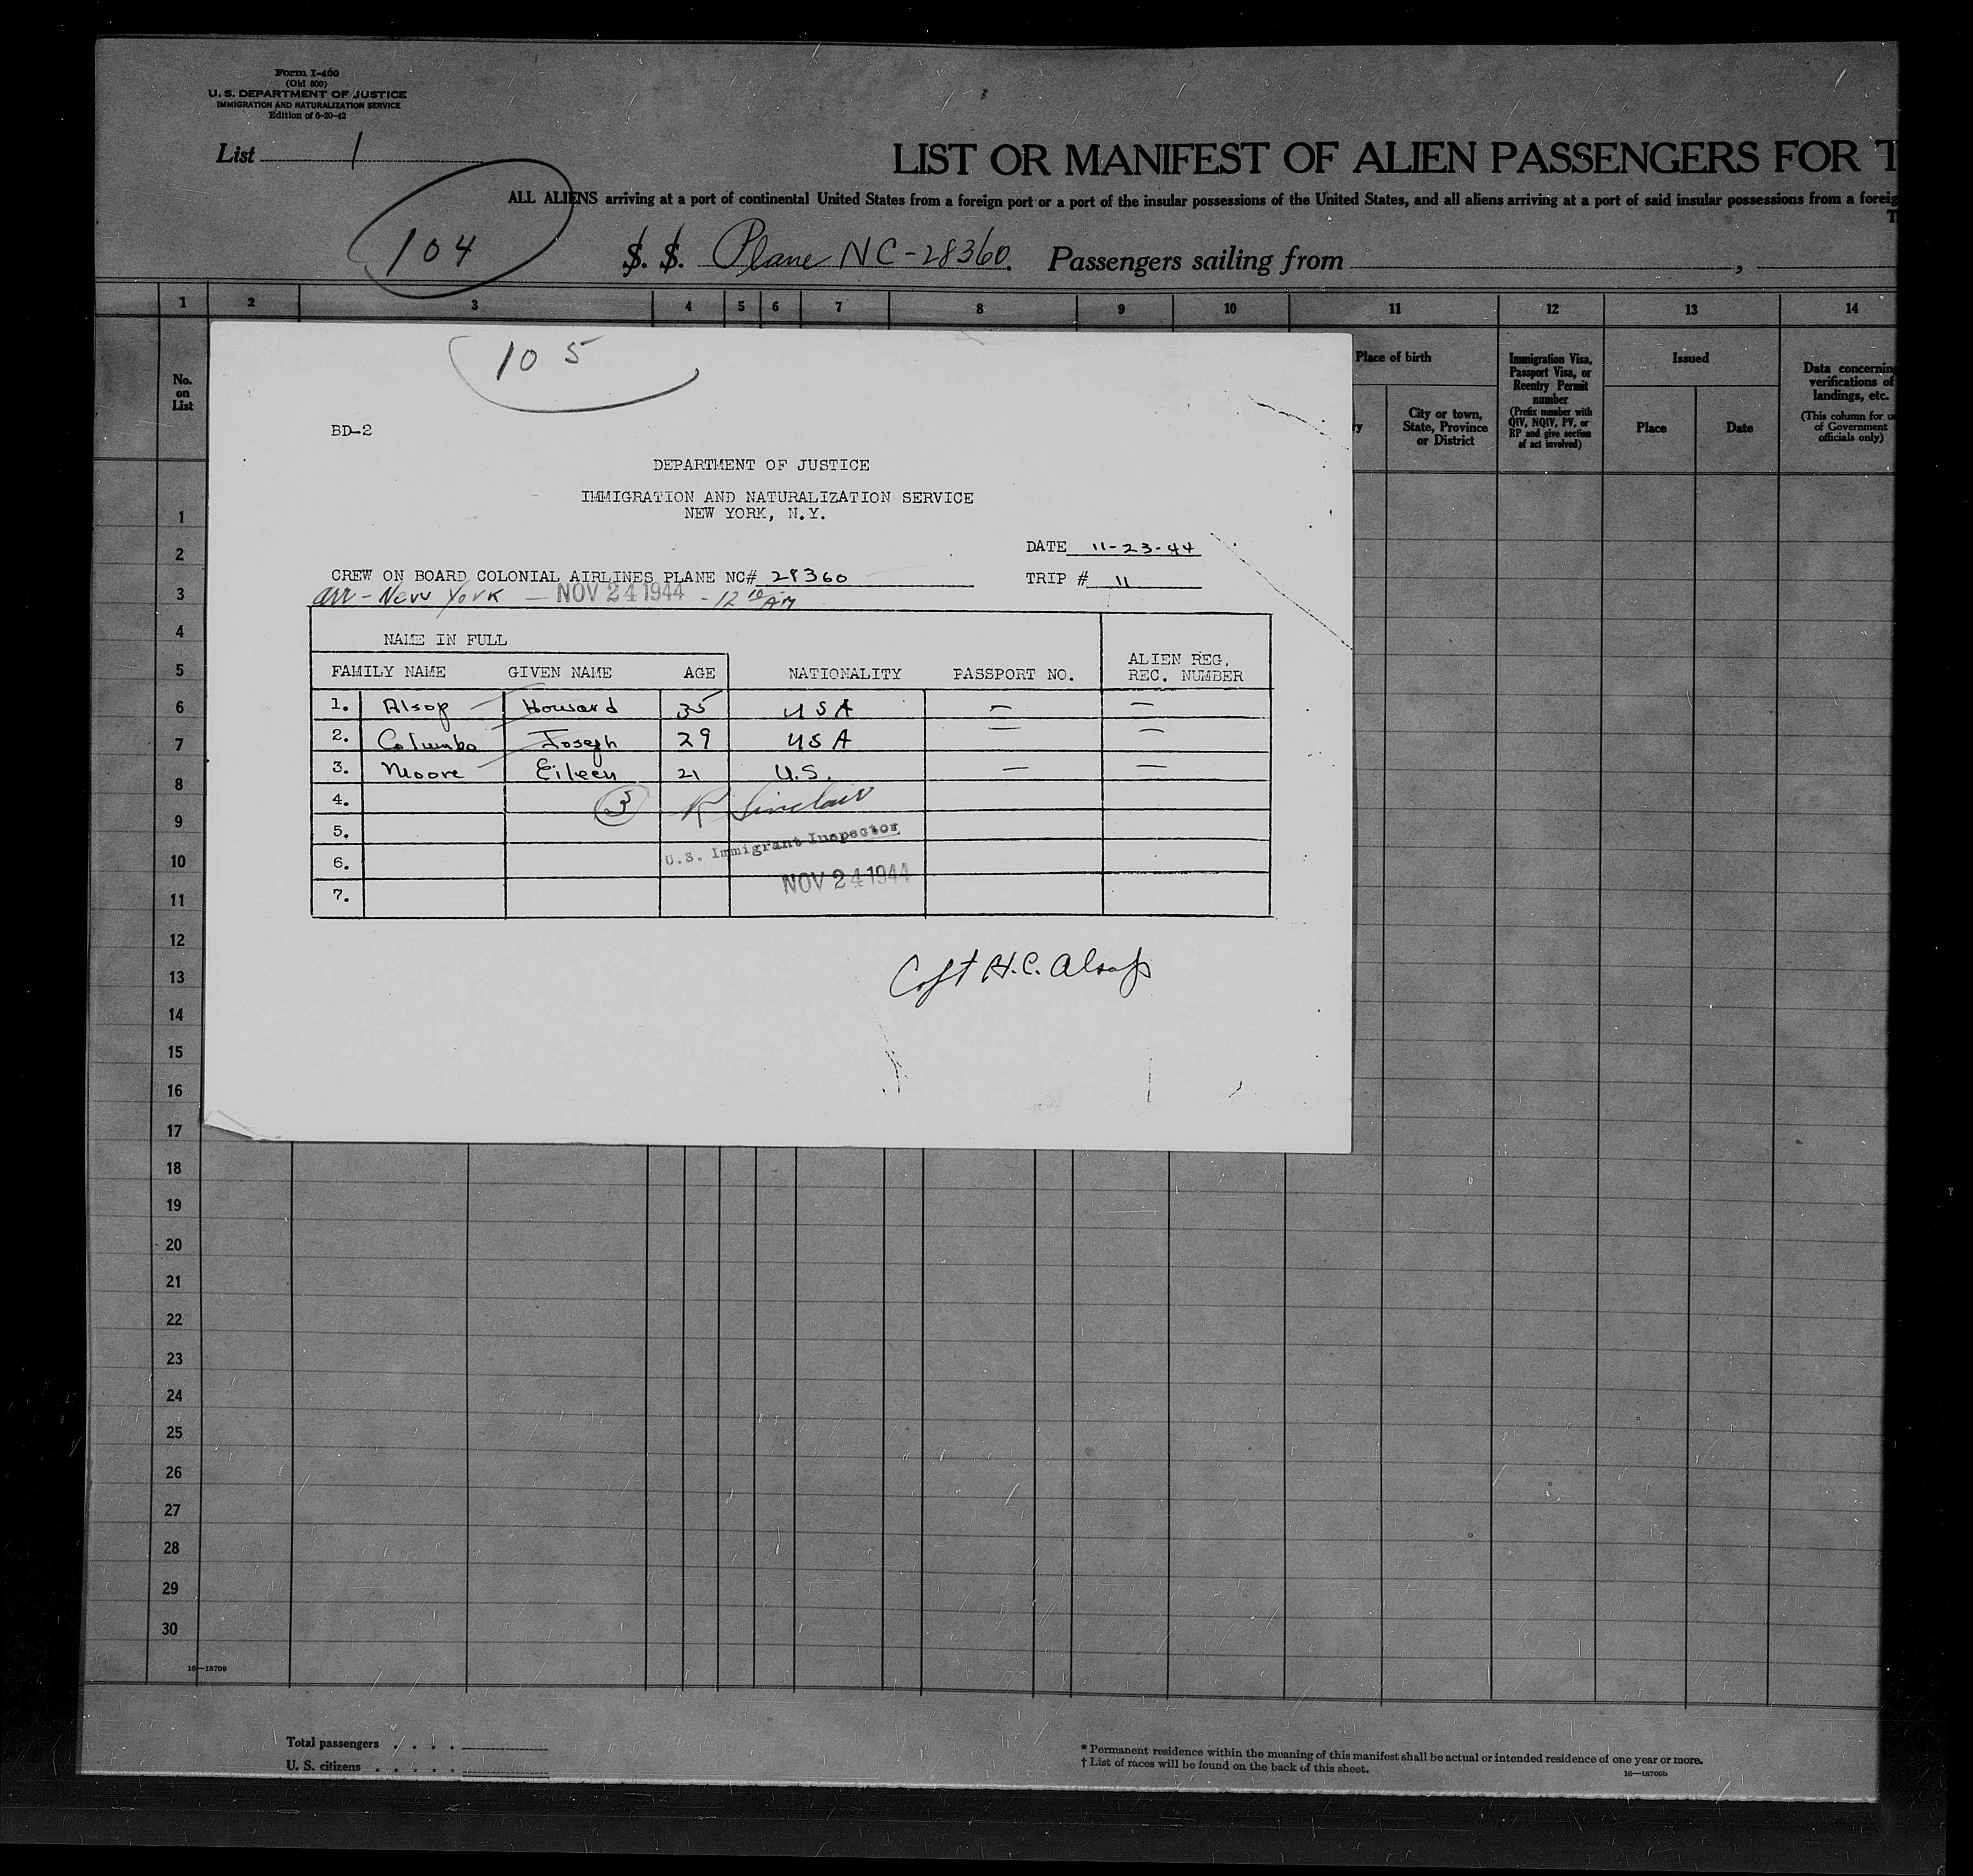 Form I-400
(Old 500)
U. S. DEPARTMENT OF JUSTICE
IMMIGRATION AND NATURALIZATION SERVICE
Edition of 6-20-42
List 1
LIST OR MANIFEST OF ALIEN PASSENGERS FOR T
ALL ALIENS arriving at a port of continental United States from a foreign port or a port of the insular possessions of the United States, and all aliens arriving at a port of said insular possessions from a foreig
T
104
S. S. Plane NC-28360. Passengers sailing from ,
1 2 3 4 5 6 7 8 9 10 11 12 13 14
No. on List
Place of birth
City or town, State, Province or District
Immigration Visa, Passport Visa, or Reentry Permit number
(Prefix number with QIV, NQIV, PV, or RP and give section of act involved)
Issued
Place Date
Data concerning verifications of landings, etc.
(This column for u of Government officials only)
105
BD-2
DEPARTMENT OF JUSTICE
IMMIGRATION AND NATURALIZATION SERVICE
NEW YORK, N.Y.
DATE 11-23-44
CREW ON BOARD COLONIAL AIRLINES PLANE NC# 28360 TRIP # 11
arr - New York - NOV 24 1944 - 12 10 AM
NAME IN FULL
FAMILY NAME GIVEN NAME AGE NATIONALITY PASSPORT NO. ALIEN REG. REC. NUMBER
1. Alsop Howard 35 USA — —
2. Columbo Joseph 29 USA — —
3. Moore Eileen 21 U.S. — —
4. 3 R Sinclair
5. U.S. Immigrant Inspector
6.
NOV 24 1944
7.
Capt H.C. Alsop
1
2
3
4
5
6
7
8
9
10
11
12
13
14
15
16
17
18
19
20
21
22
23
24
25
26
27
28
29
30
16—18709
Total passengers . . . .
U. S. citizens . . . . .
* Permanent residence within the meaning of this manifest shall be actual or intended residence of one year or more.
† List of races will be found on the back of this sheet.
16—18709b